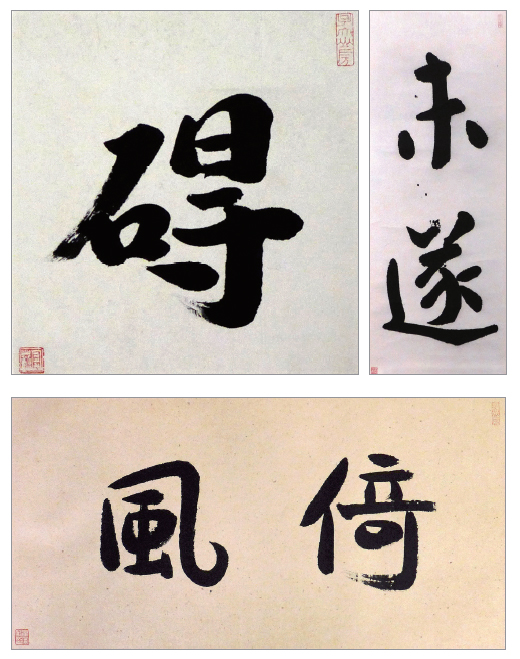 碍
未遂
倚風